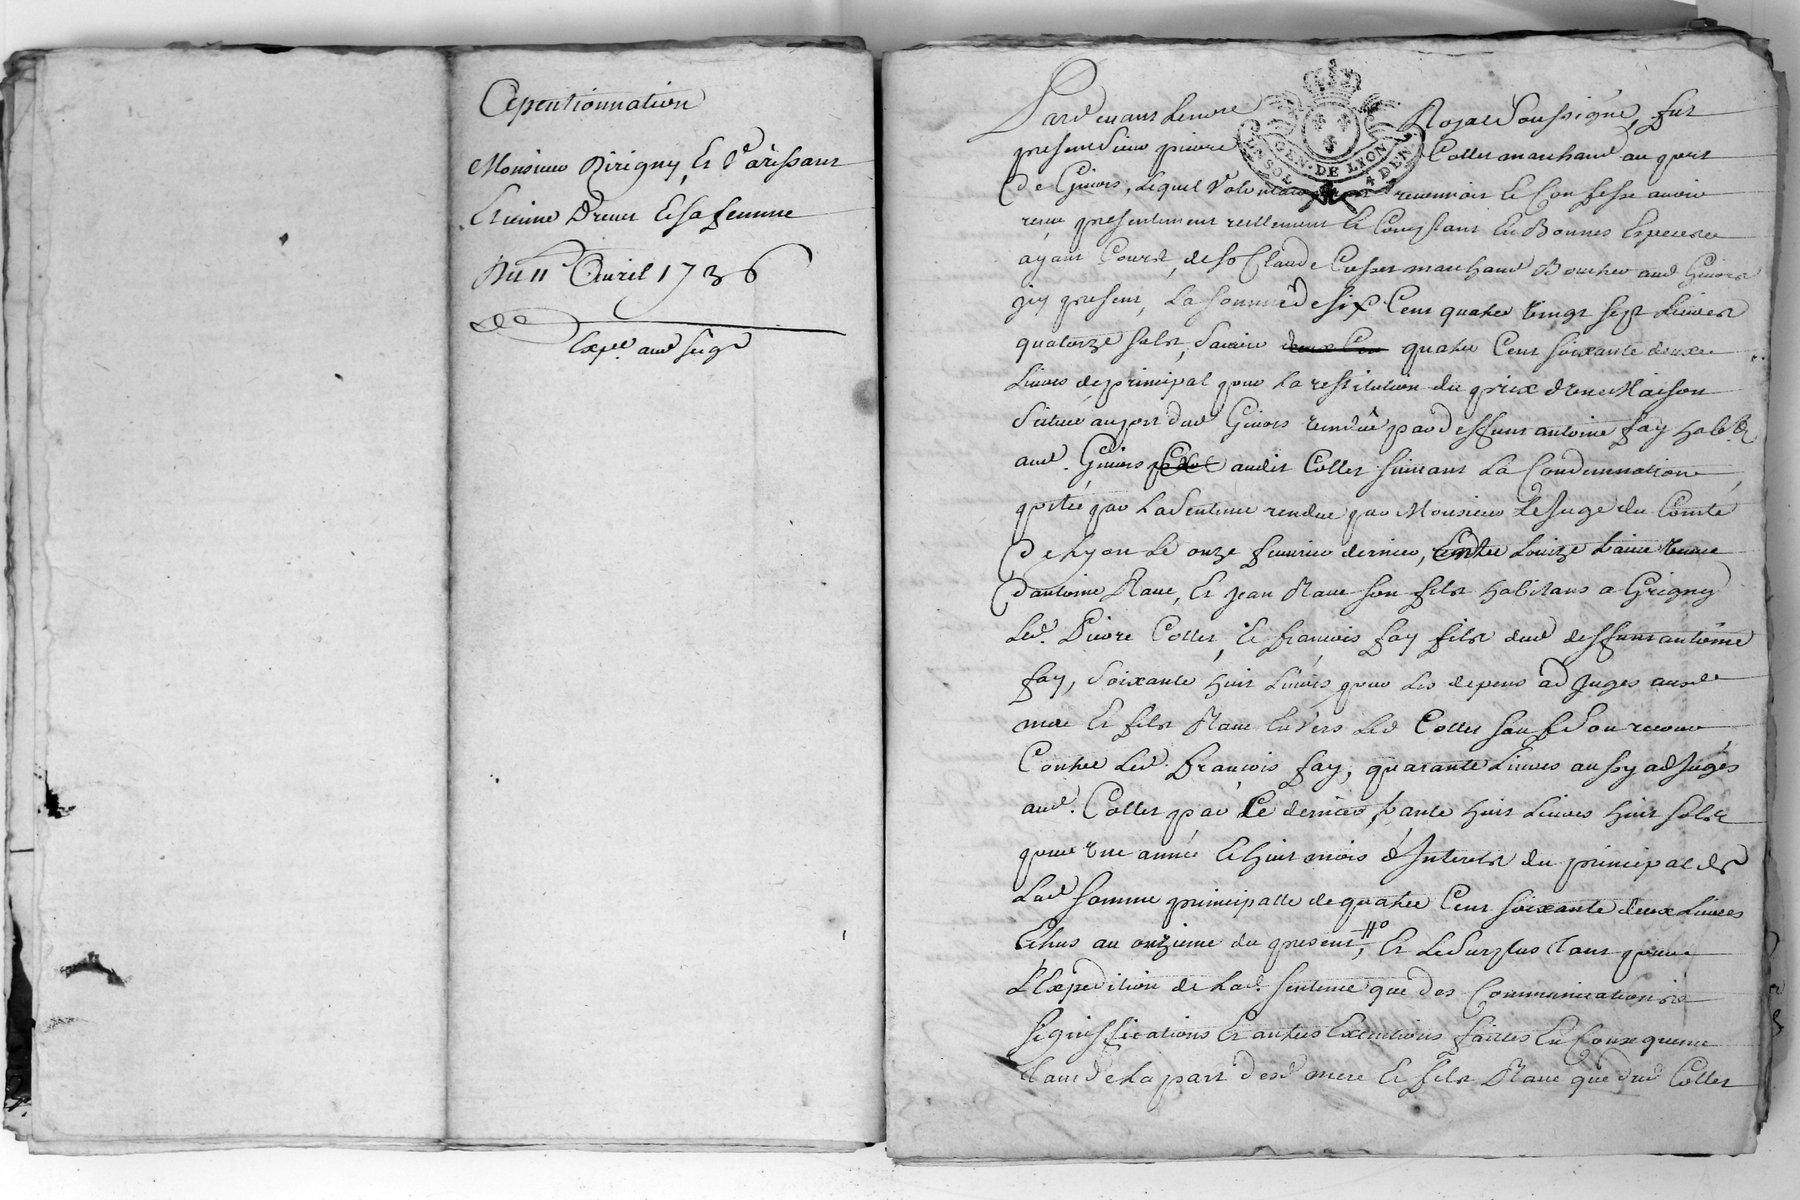 Cepentionnation
Monsieur Dirigny, Et Parissant
Etienne Dreuet Et sa femme
Du 11e Avril 1736
Expée. aud sieur
Pardevant Lenore Royal Soussigné, fut
present Sieur pierre Collet marchand au port
de Givors, Lequel Volontairement reconnoit Et Confesse avoir
receu presentement reellement Et Comptant En Bonnes Especes
ayant Cours, de sr Claude marchand Boucher aud Givors
icy present, La somme de six Cent quatre vingt sept Livres
quatorze sols, Scavoir deux Cen quatre Cent soixante deux
Livres de principal pour La restitution du prix d'une Maison
Scituée au port dud Givors vendüe par deffunt antoine fay
aud. Givors audit Collet suivant La Condemnation
portée par La Sentence rendue par Monsieur Le Juge du Comté
de Lyon Le onze fevrier dernier, Entre Louize veuve
d'antoine Rave, Et Jean Rave son fils habitans a Grigny
Led. Pierre Collet, Et francois fay fils dud deffunt antoine
fay, Soixante huit Livres pour Les depens adjuges auxd
mere Et fils Rave Envers Led Collet sauf Son recours
Contre Led. francois fay, quarante Livres aussy adjuges
aud. Collet par Ce dernier, trante huit Livres huit sols
pour Une année Et huit mois d'Interests du principal de
Lad somme principalle de quatre Cent soixante deux Livres
Echus au onzieme du present, Et Le Surplus tant pour
L'Expedition de Lad. sentence que des Communications
significations Et autres Executions faittes En Consequence
tant de La part desd mere Et fils Rave que dud Collet
GEN. DE LYON
4 DEN.